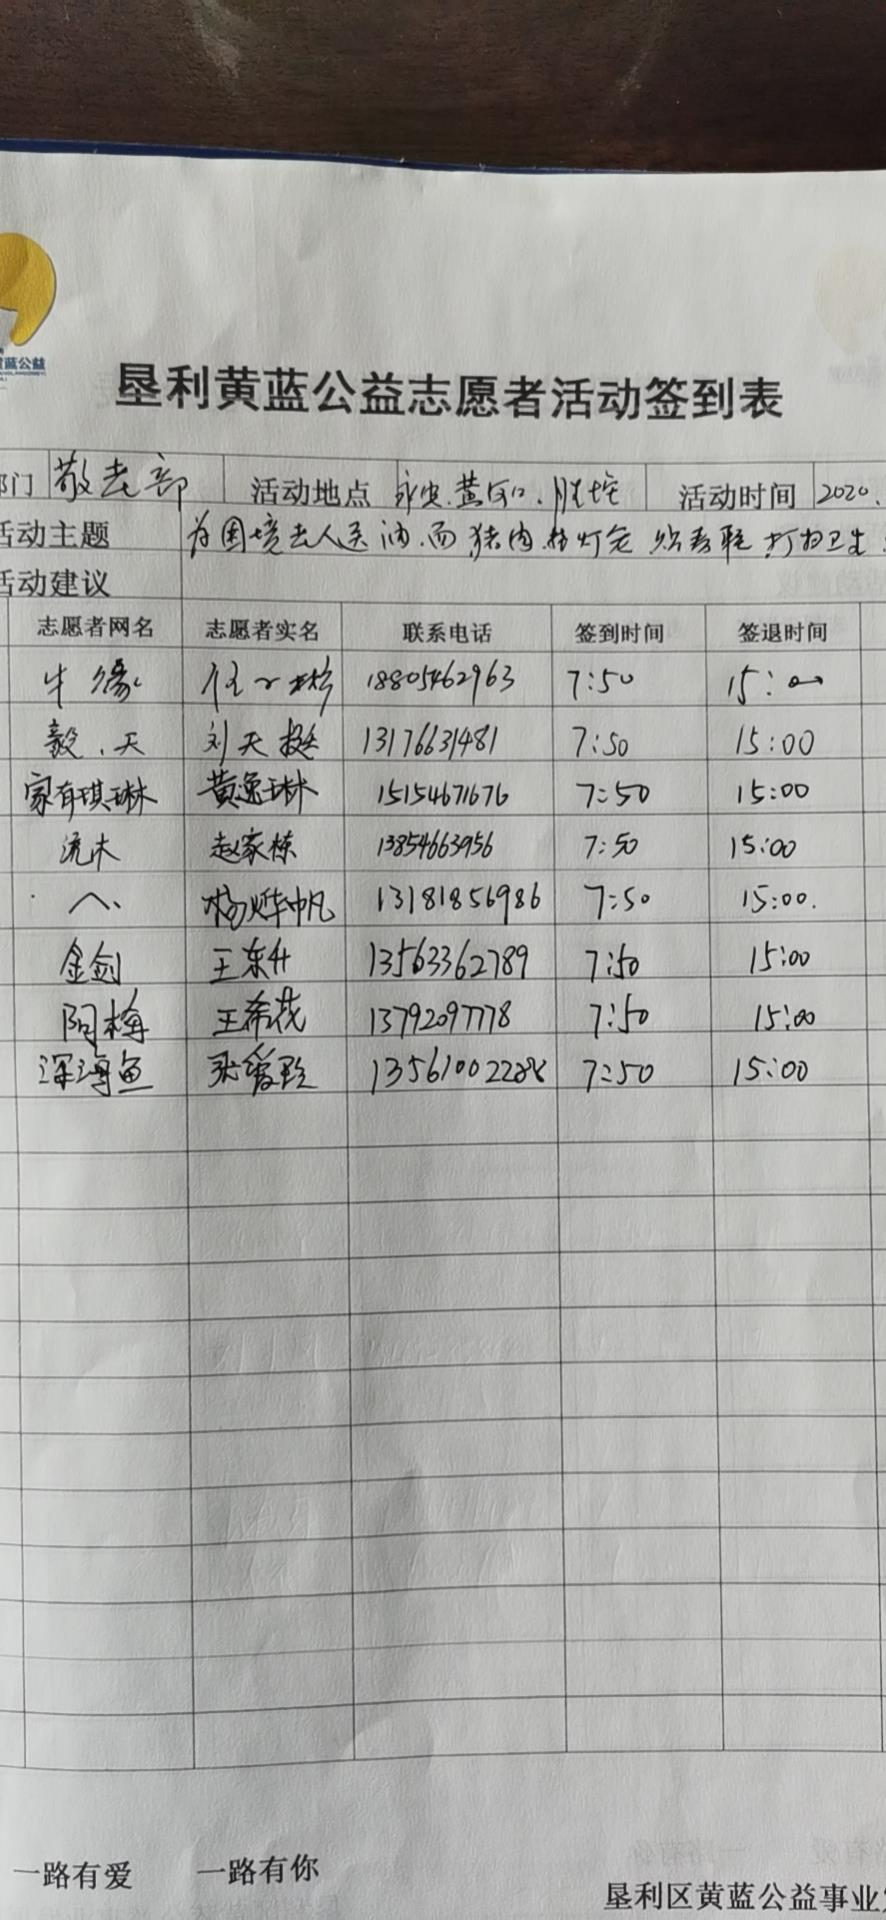 黄蓝公益
垦利黄蓝公益志愿者活动签到表
部门 敬老部 活动地点 永安.黄河口.胜坨 活动时间 2020.
活动主题 为困境老人送油.面 猪肉 灯笼 贴春联 打扫卫生
活动建议
志愿者网名 志愿者实名 联系电话 签到时间 签退时间
牛缘 18805462963 7:50 15:00
毅.天 刘天挺 13176631481 7:50 15:00
家有琪琳 黄逸琳 15154671676 7:50 15:00
流沫 赵家栋 13854663956 7:50 15:00
へ. 杨烨帆 13181856986 7:50 15:00.
金剑 王东升 13563362789 7:50 15:00
阿梅 王希花 13792097778 7:50 15:00
深海鱼 张爱玲 7:50 15:00
一路有爱 一路有你
垦利区黄蓝公益事业